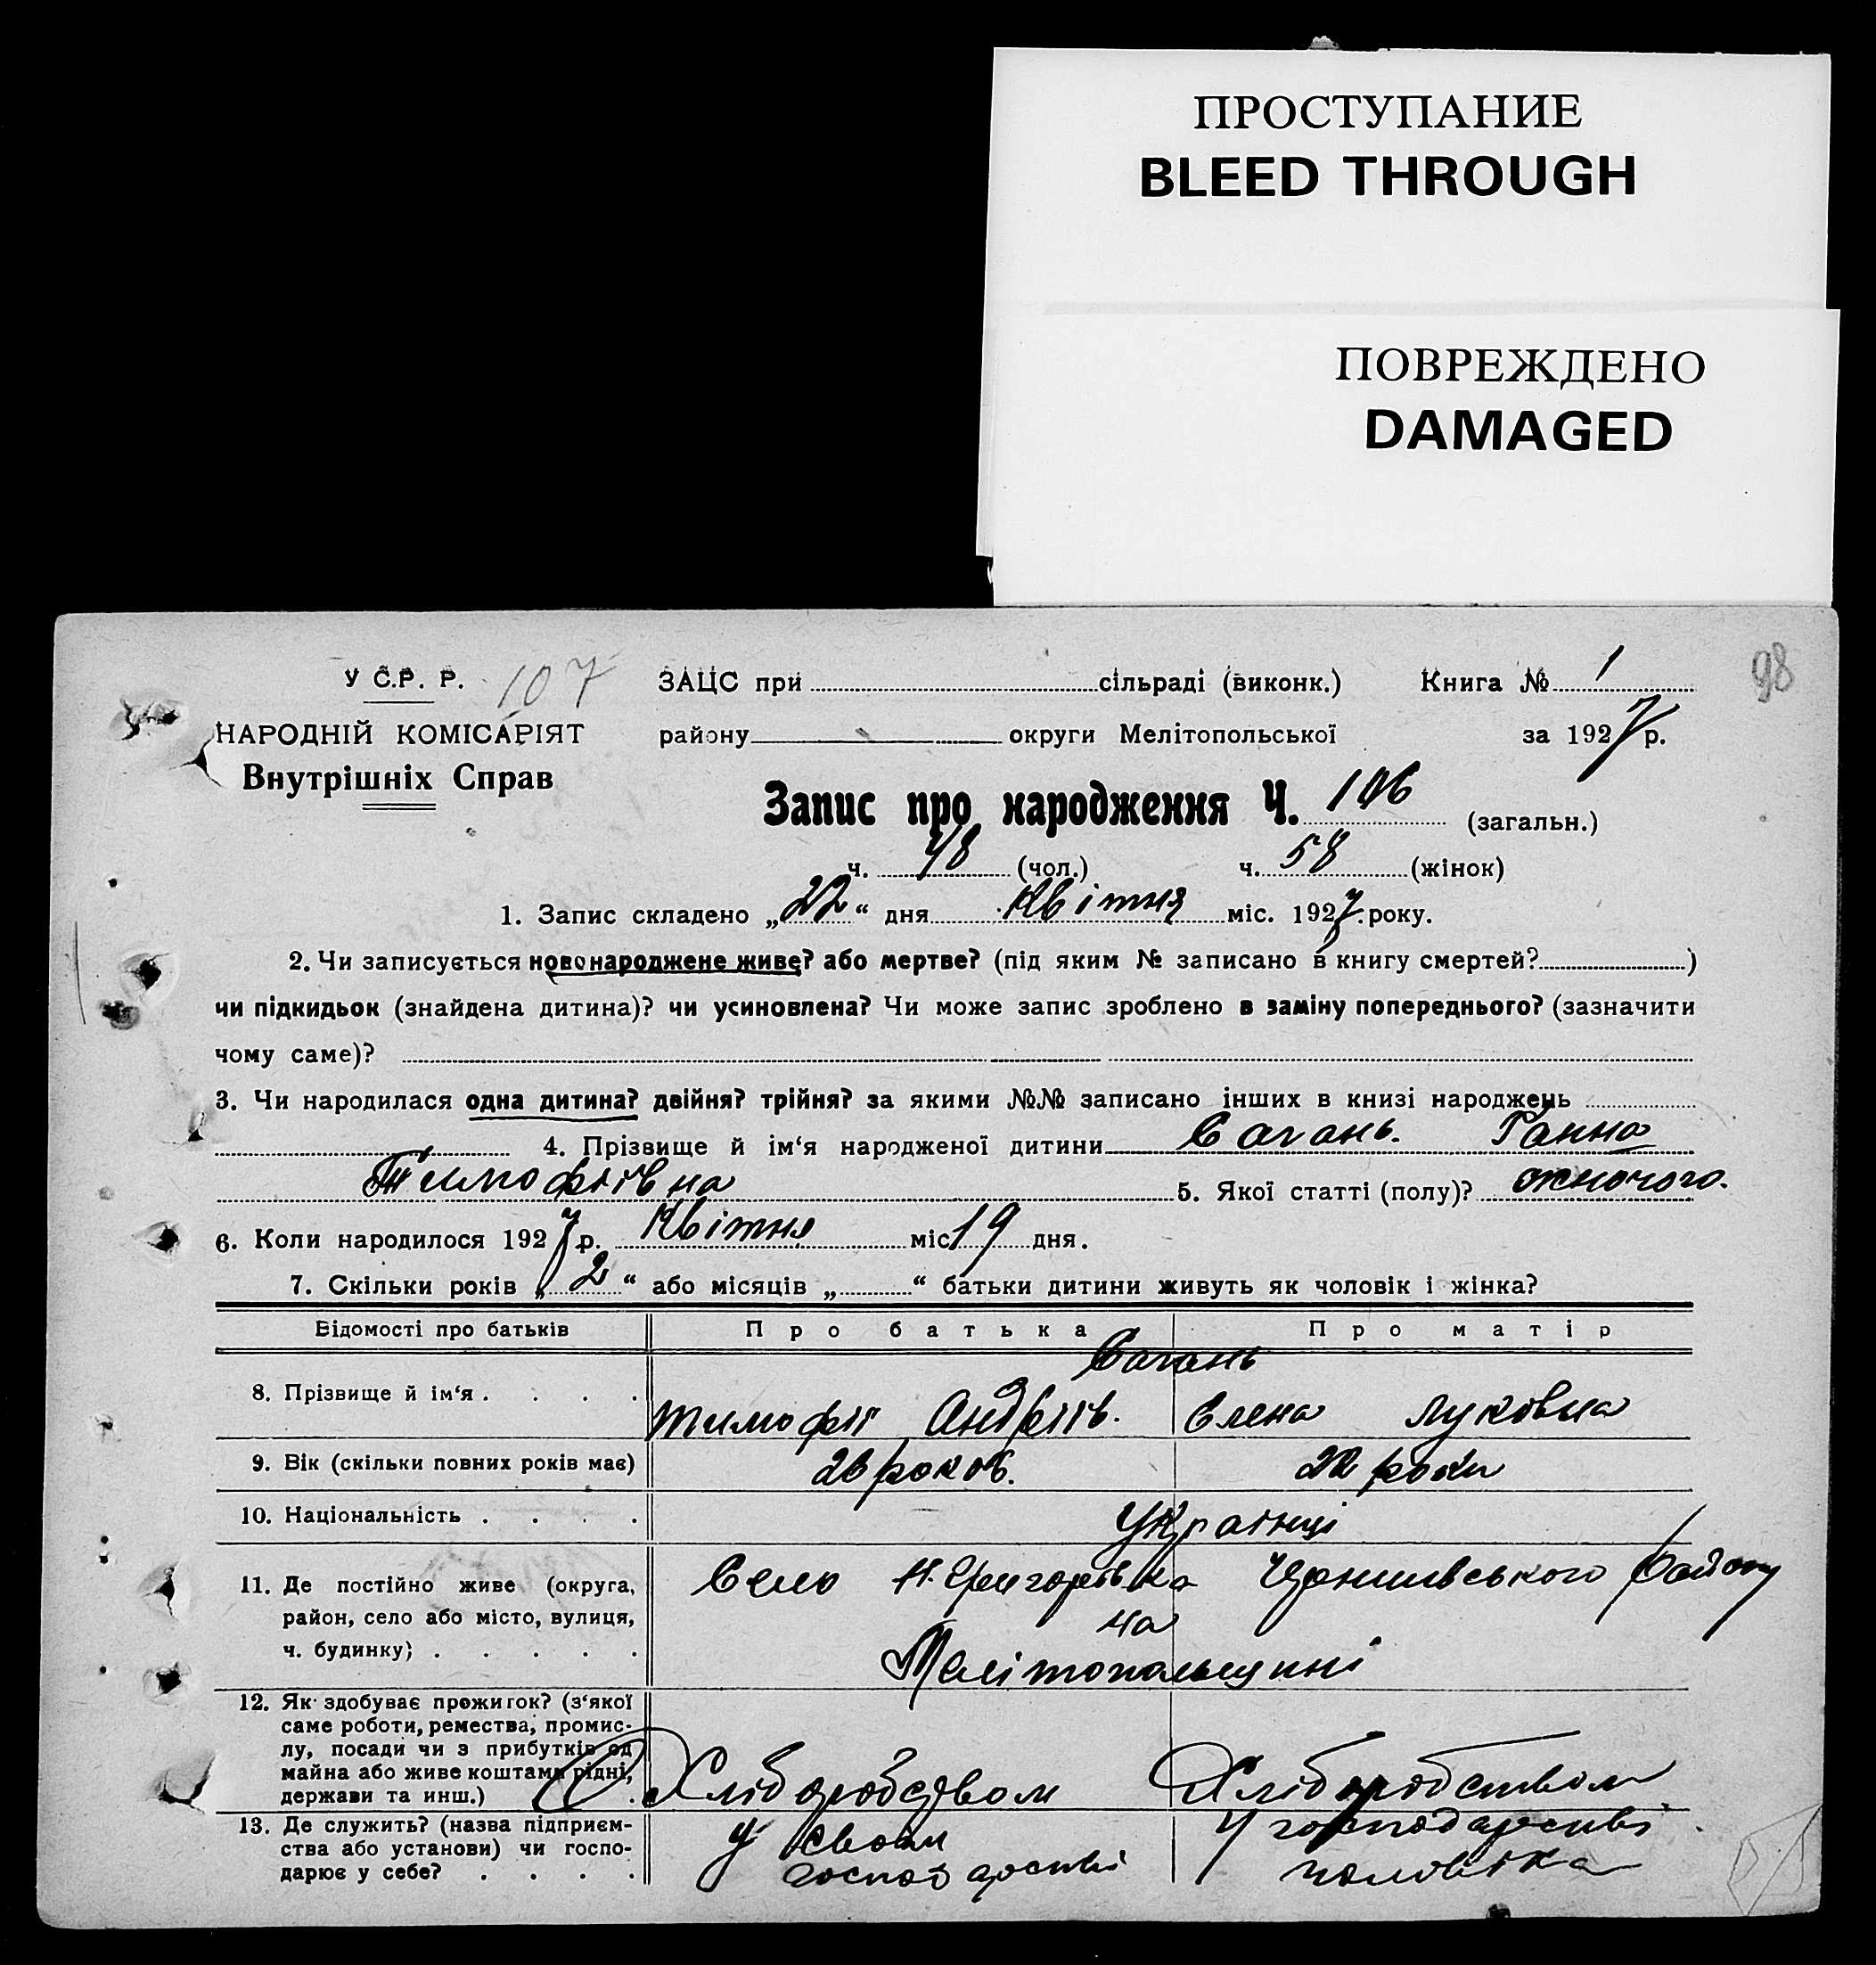 ПРОСТУПАНИЕ
BLEED THROUGH
ПОВРЕЖДЕНО
DAMAGED
У С.Р. Р. 107 ЗАЦС при сільраді (виконк.) Книга № 1 98
НАРОДНІЙ КОМІСАРІЯТ району округи Мелітопольської за 1927 р.
Внутрішніх Справ
Запис про народження Ч. 106 (загальн.)
ч. 48 (чол.) ч. 58 (жінок)
1. Запис складено „22“ дня Квітня міс. 1927 року.
2. Чи записується новонароджене живе? або мертве? (під яким № записано в книгу смертей? )
чи підкидьок (знайдена дитина)? чи усиновлена? Чи може запис зроблено в заміну попереднього? (зазначити
чому саме)?
3. Чи народилася одна дитина? двійня? трійня? за якими №№ записано інших в книзі народжень
4. Прізвище й ім‘я народженої дитини Сагань. Ганна
Тимофіївна 5. Якої статті (полу)? жіночого.
6. Коли народилося 1927 р. Квітня міс 19 дня.
7. Скільки років „2“ або місяців „ “ батьки дитини живуть як чоловік і жінка?
Відомості про батьків Про батька Про матір
Сагань
8. Прізвище й ім‘я . . . . Тимофій Андріїв. Елена Луковна
9. Вік (скільки повних років має) 26 роков. 22 роки
10. Національність . . . . Українці
11. Де постійно живе (округа, Село Н. Григорівка Чернигівського району
район, село або місто, вулиця, на
ч. будинку) . . . . . Мелітопольщині
12. Як здобуває прожиток? (з‘якої
саме роботи, ремества, промис-
лу, посади чи з прибутків од
майна або живе коштами рідні, Хліборобством Хліборобством
держави та инш.) .
13. Де служить? (назва підприєм- У своїм У господарстві
ства або установи) чи госпо- господарстві чоловіка
дарює у себе? . . . .